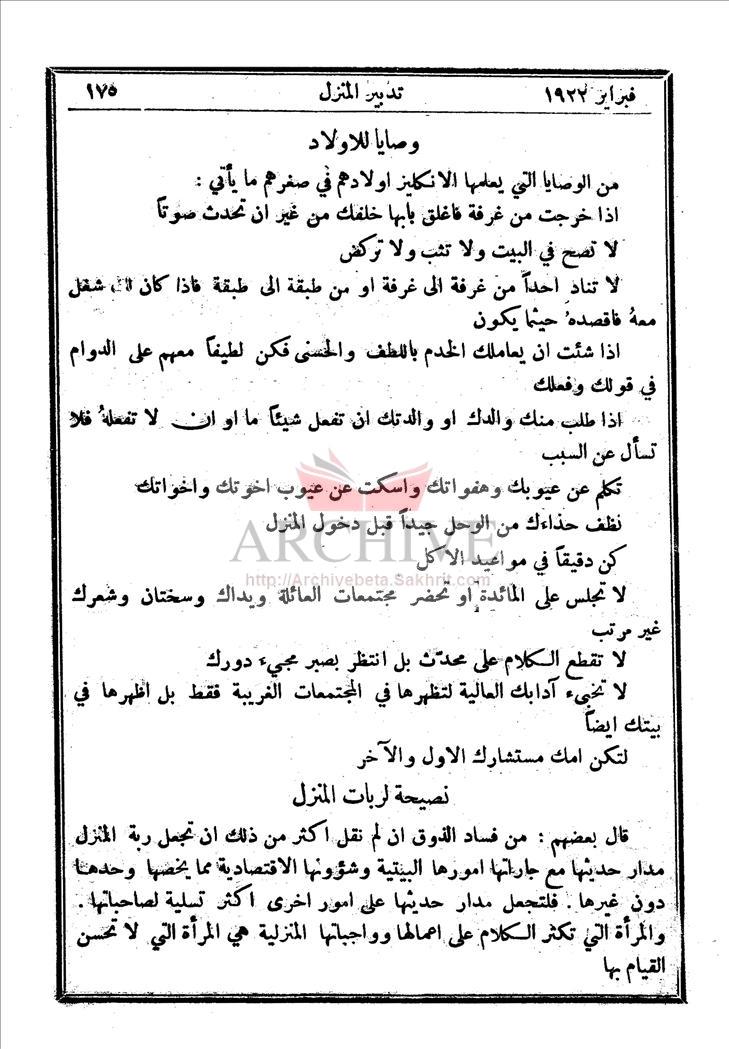 فبراير ١٩٢٢ تدبير المنزل ١٧٥
وصايا للاولاد
من الوصايا التي يعلمها الانكليز اولادهم في صغرهم ما يأتي :
اذا خرجت من غرفة فاغلق بابها خلفك من غير ان تحدث صوتاً
لا تصح في البيت ولا تثب ولا تركض
لا تناد احداً من غرفة الى غرفة او من طبقة الى طبقة فاذا كان لك شغل
معهُ فاقصدهُ حيثما يكون
اذا شئت ان يعاملك الخدم باللطف والحسنى فكن لطيفاً معهم على الدوام
في قولك وفعلك
اذا طلب منك والدك او والدتك ان تفعل شيئاً ما او ان لا تفعلهُ فلا
تسأل عن السبب
تكلم عن عيوبك وهفواتك واسكت عن عيوب اخوتك واخواتك
نظف حذاءك من الوحل جيداً قبل دخول المنزل
ARCHIVE
كن دقيقاً في مواعيد الاكل
http://Archivebeta.Sakhrit.com
لا تجلس على المائدة او تحضر مجتمعات العائلة ويداك وسختان وشعرك
غير مرتب
لا تقطع الكلام على محدّث بل انتظر بصبر مجيء دورك
لا تخبيء آدابك العالية لتظهرها في المجتمعات الغريبة فقط بل اظهرها في
بيتك ايضاً
لتكن امك مستشارك الاول والآخر
نصيحة لربات المنزل
قال بعضهم : من فساد الذوق ان لم نقل اكثر من ذلك ان تجعل ربة المنزل
مدار حديثها مع جاراتها امورها البيتية وشؤونها الاقتصادية مما يخصها وحدها
دون غيرها . فلتجعل مدار حديثها على امور اخرى اكثر تسلية لصاحباتها .
والمرأة التي تكثر الكلام على اعمالها وواجباتها المنزلية هي المرأة التي لا تحسن
القيام بها